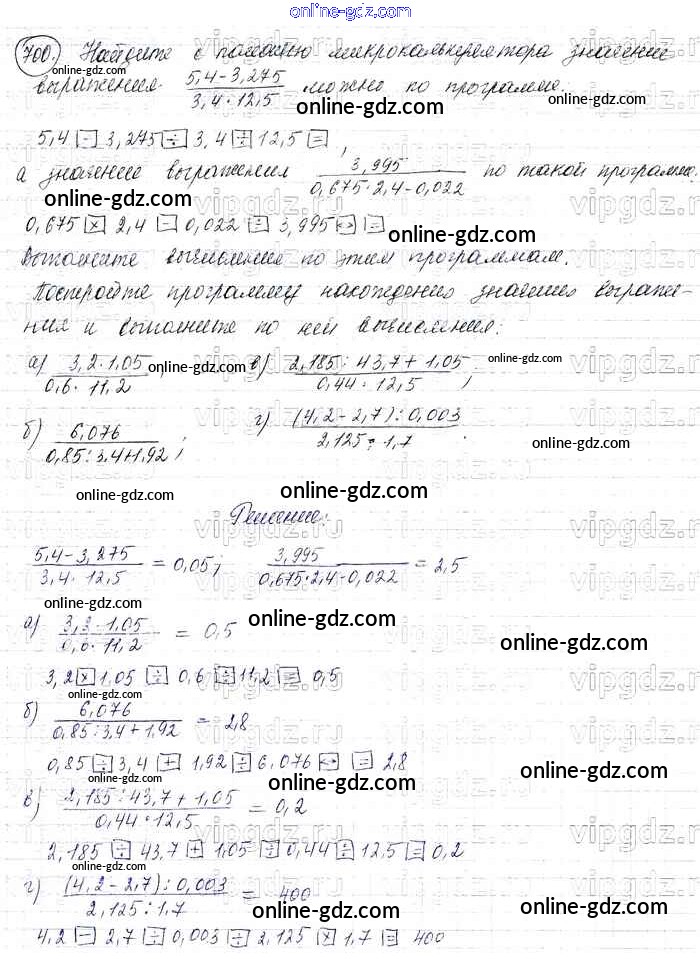 online-gdz.com
700. Найдите с помощью микрокалькулятора значений
выражения (5,4-3,275)/(3,4·12,5) можно по программе.
online-gdz.com
online-gdz.com
5,4 [-] 3,275 [÷] 3,4 [÷] 12,5 [=],
а значение выражения 3,995/(0,675·2,4-0,022) по такой программе.
online-gdz.com
0,675 [×] 2,4 [-] 0,022 [÷] 3,995 [↔] [=]
online-gdz.com
Выполните вычисления по этим программам.
Постройте программу нахождения значения выраже-
ния и выполните по ней вычисления:
а) (3,2·1,05)/(0,6·11,2) online-gdz.com в) (2,185:43,7+1,05)/(0,44·12,5); online-gdz.com
б) 6,076/(0,85:3,4+1,92); г) ((4,2-2,7):0,003)/(2,125:1,7)
online-gdz.com
online-gdz.com
online-gdz.com
Решение:
(5,4-3,275)/(3,4·12,5) = 0,05; 3,995/(0,675·2,4-0,022) = 2,5
online-gdz.com
а) (3,2·1,05)/(0,6·11,2) = 0,5
online-gdz.com
online-gdz.com
3,2 [×] 1,05 [÷] 0,6 [÷] 11,2 [=] 0,5
online-gdz.com
б) 6,076/(0,85:3,4+1,92) = 2,8
0,85 [÷] 3,4 [+] 1,92 [÷] 6,076 [↔] [=] 2,8
online-gdz.com
online-gdz.com
online-gdz.com
в) (2,185:43,7+1,05)/(0,44·12,5) = 0,2
2,185 [÷] 43,7 [+] 1,05 [÷] 0,44 [÷] 12,5 [=] 0,2
online-gdz.com
г) ((4,2-2,7):0,003)/(2,125:1,7) = 400
online-gdz.com
online-gdz.com
4,2 [-] 2,7 [÷] 0,003 [÷] 2,125 [×] 1,7 [=] 400
online-gdz.com